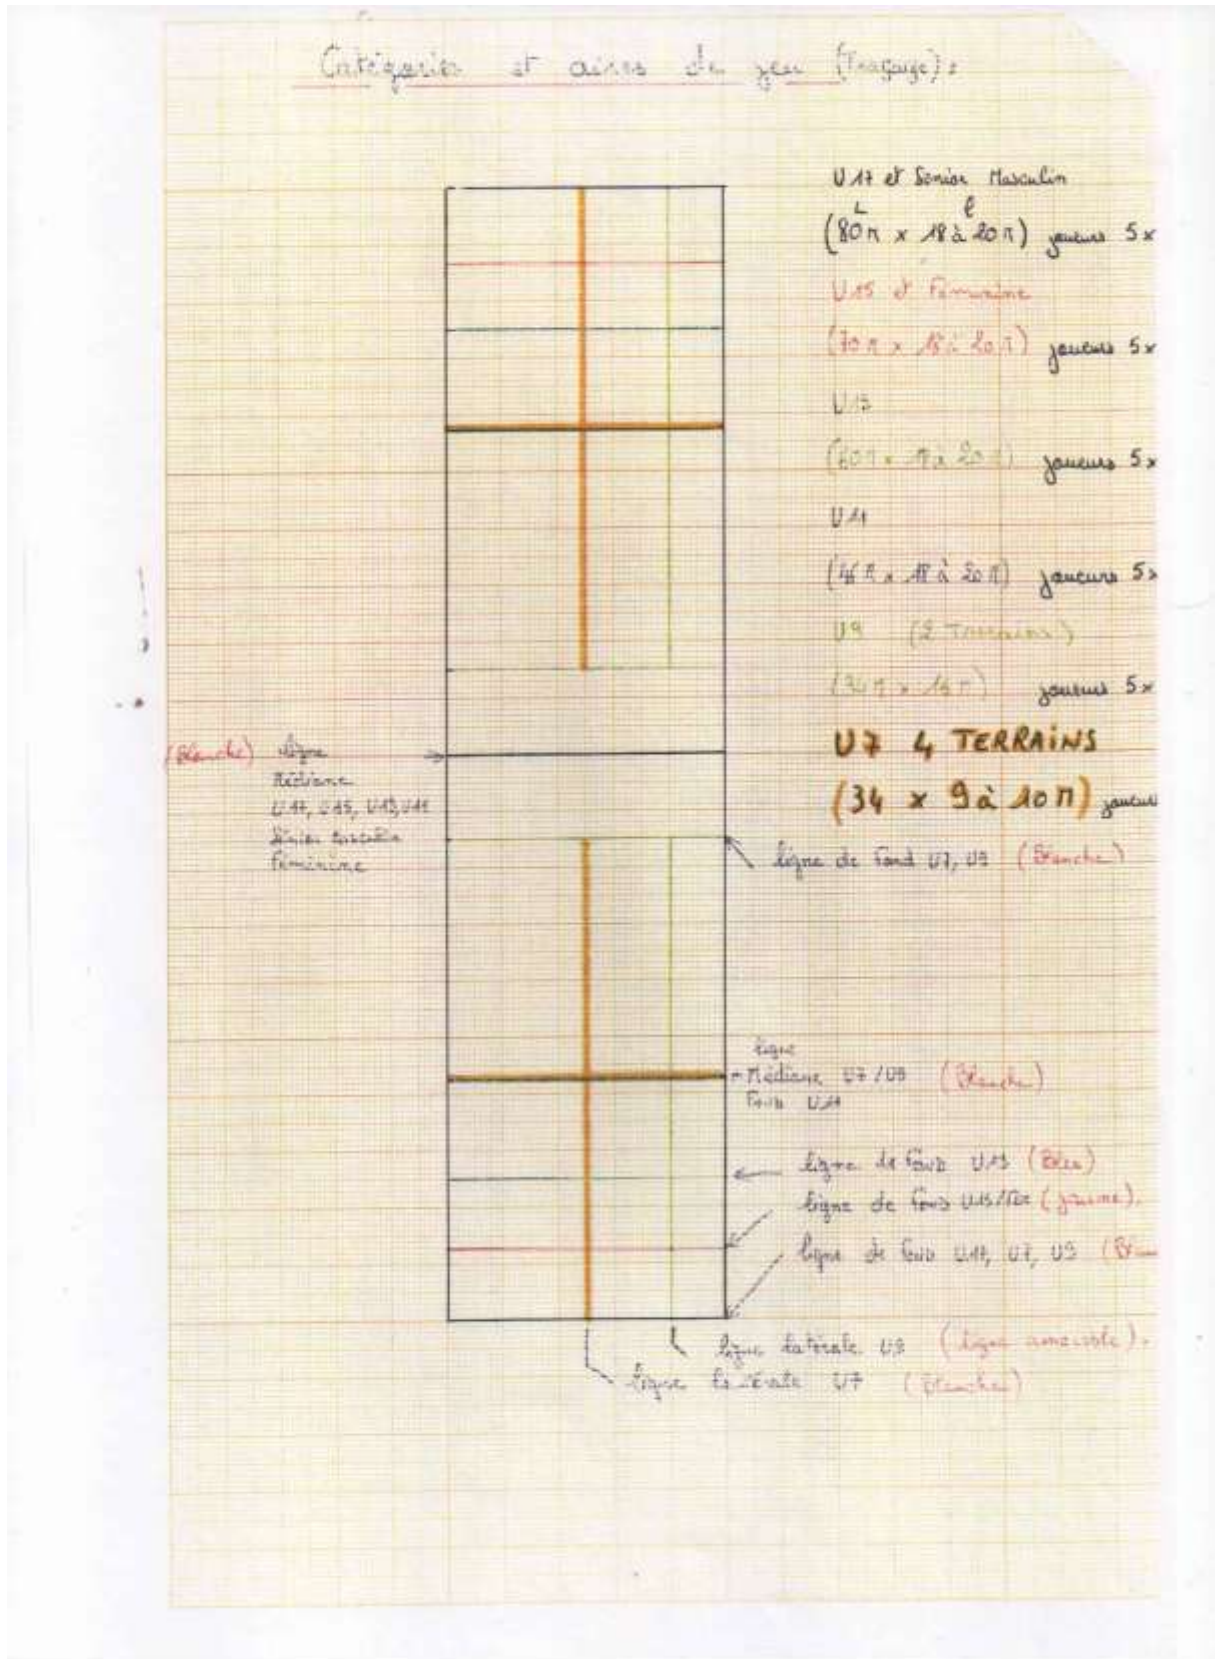 Catégories et aires de jeu (Traçage) :
U17 et Sénior Masculin
L l
(80m x 18 à 20m) joueurs 5x
U15 et Féminine
(70m x 18 à 20m) joueurs 5x
U13
(60m x 18 à 20m) joueurs 5x
U11
(46m x 18 à 20m) joueurs 5x
U9 (2 Terrains)
(34m x 14m) joueurs 5x
U7 4 TERRAINS
(34 x 9 à 10m) joueurs
(Blanche) ligne
Médiane
U17, U15, U13, U11
Sénior
Féminine
ligne de fond U7, U9 (Blanche)
ligne
Médiane U7/U9 (Blanche)
Fond U11
ligne de fond U13 (Bleu)
ligne de fond U15/ (jaune).
ligne de fond U17, U7, U9
ligne latérale U9 (ligne amovible).
ligne latérale U7 (Blanche)